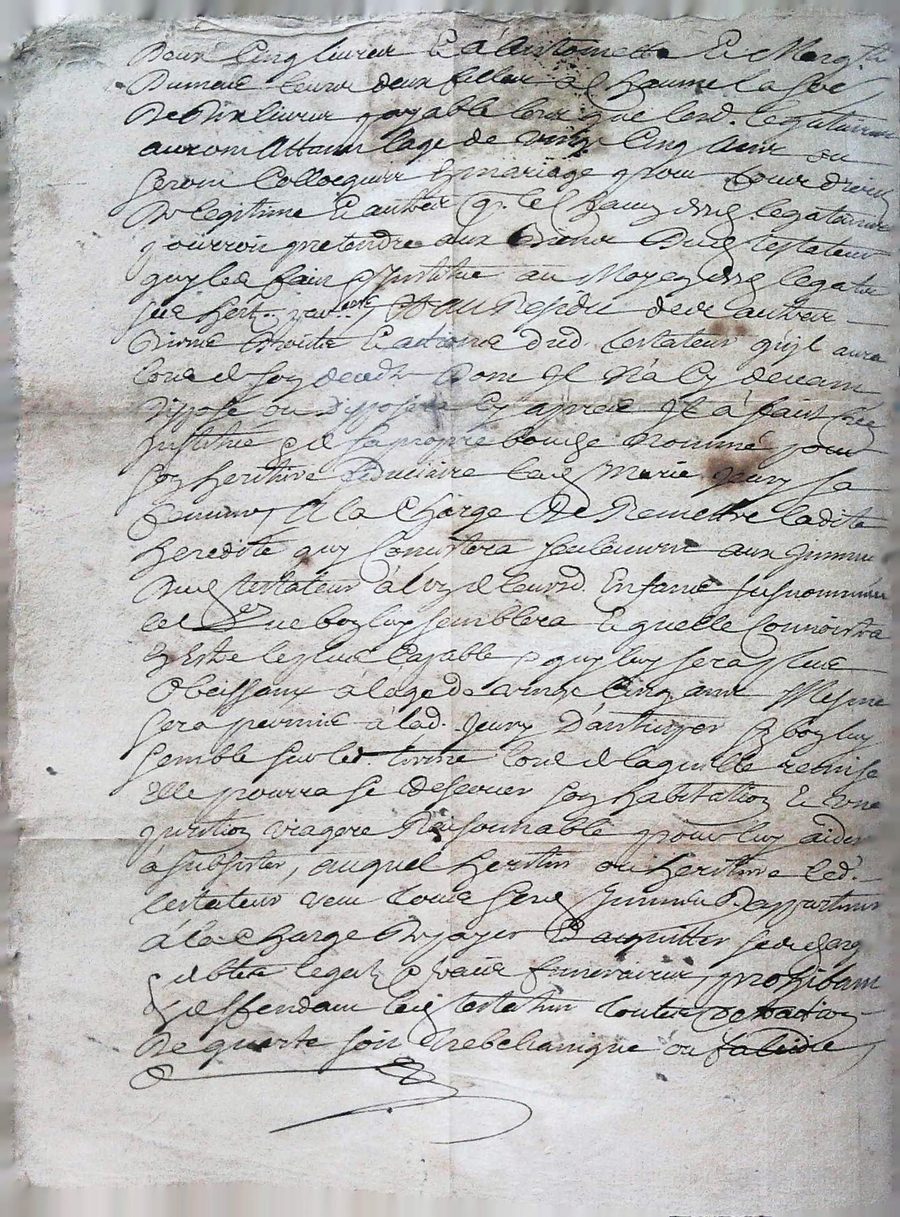 deux cinq livres Et a Antoinette Et Marg.te
leurs deux filles a Chacune la so.e
de dix livres payable lors que lesd. legataires
auront Attain lage de vingt Cinq Ans ou
seront Collocquees En mariage pour tous droits
de legitime Et autres q. les legataires
pourroit pretendre aux biens dud. testateur
quy les fait & Institue au Moyen dud. legat
ses herit.
biens droits Et actions dud. testateur qu'il aura
lors de son deceds dont Il N'a Cy devant
dispose ou disposera Cy apres Il a fait Cree
Institué & de sa propre bouche Nommé pour
son heritiere fiduciaire lad. Marie Jeury sa
femme A la Charge De Remettre ladite
heredite quy Consistera seulement aux Immeu
dud. testateur a lun de leursd. Enfans susnommes
tel Que bon luy semblera Et quelle Connoistra
En Estre le plus Capable & quy luy sera plus
Obeissant a lage de vingt Cinq ans Mesme
sera permis a lad. Jeury D'anticiper sy bon luy
semble sur led. terme lors de laquelle remise
Elle pourra se reserver son habitation Et une
pention viagere Raisonnable pour luy aider
a subsister, auquel heritier ou heritiere led.
testateur veut tous ses Immeu. Appartenir
a la Charge De payer Et acquitter ses charg
& debtes legats & frais funeraires, prohibant
& deffendant led. testateur toutes detraction
De quarte soit trebellianique ou falcidie